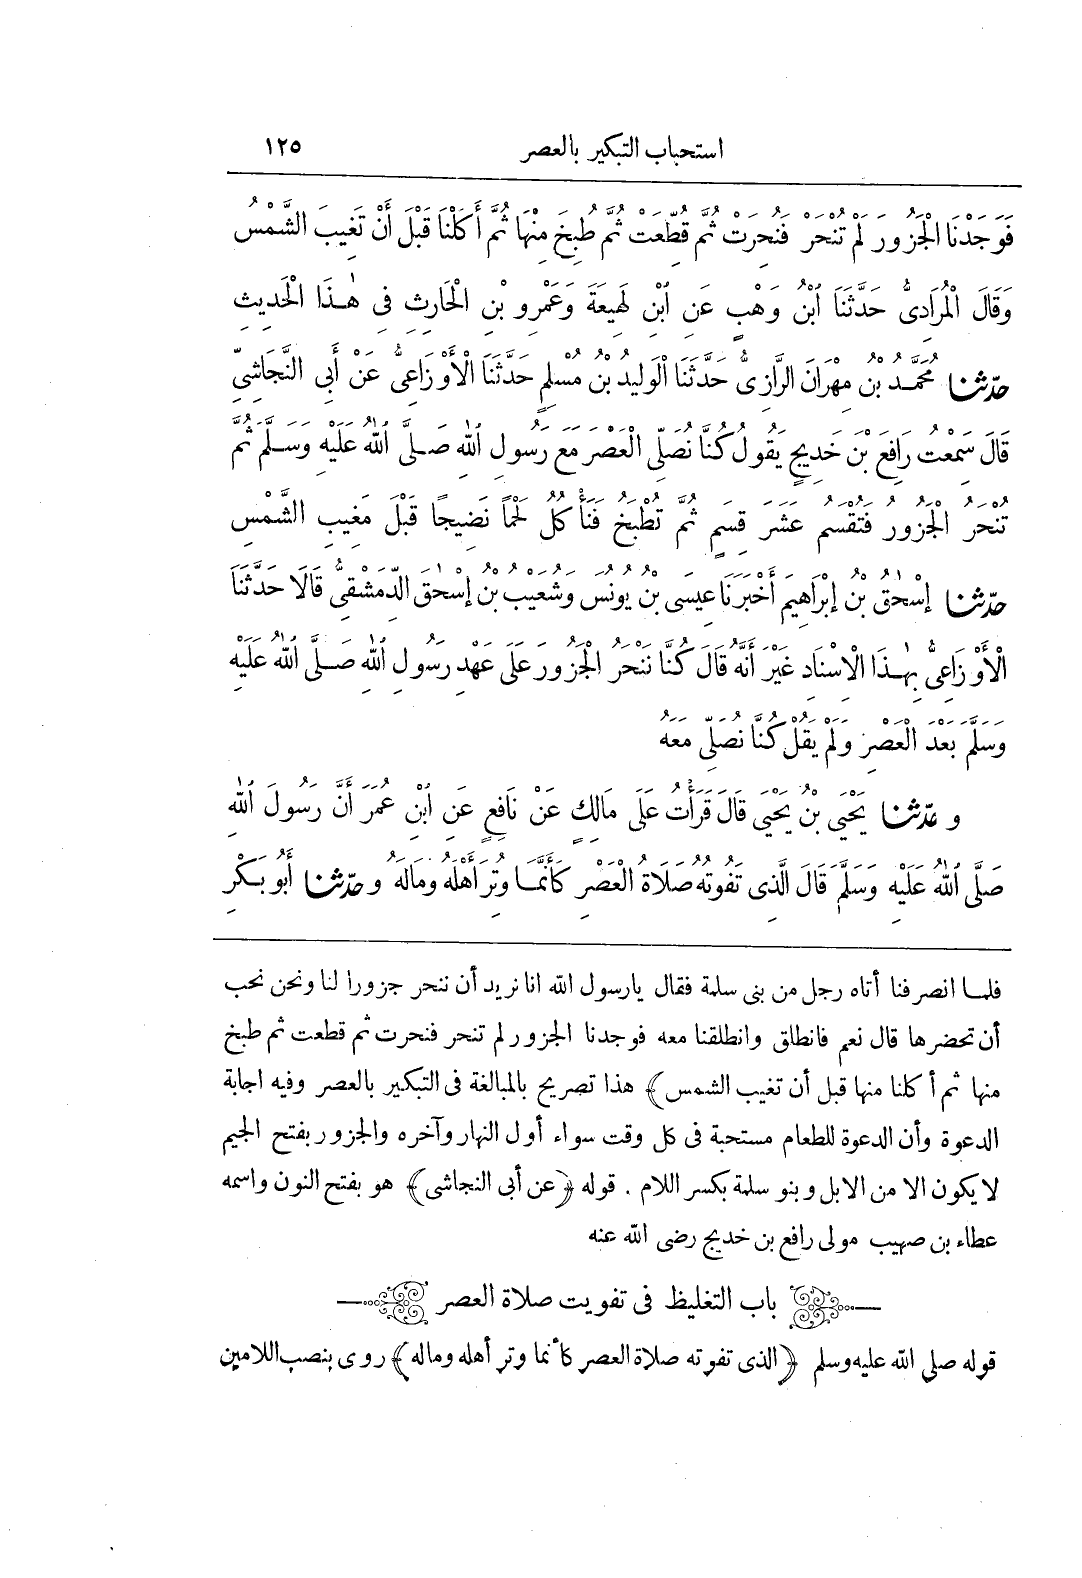 استحباب التبكير بالعصر ١٢٥
فَوَجَدْنَا الْجَزُورَ لَمْ تُنْحَرْ فَنُحِرَتْ ثُمَّ قُطِّعَتْ ثُمَّ طُبِخَ مِنْهَا ثُمَّ أَكَلْنَا قَبْلَ أَنْ تَغِيبَ الشَّمْسُ
وَقَالَ الْمُرَادِىُّ حَدَّثَنَا ابْنُ وَهْبٍ عَنِ ابْنِ لَهِيعَةَ وَعَمْرِو بْنِ الْحَارِثِ فِى هٰذَا الْحَدِيثِ
حدّثنا مُحَمَّدُ بْنُ مِهْرَانَ الرَّازِىُّ حَدَّثَنَا الْوَلِيدُ بْنُ مُسْلِمٍ حَدَّثَنَا الْأَوْزَاعِىُّ عَنْ أَبِى النَّجَاشِىِّ
قَالَ سَمِعْتُ رَافِعَ بْنَ خَدِيجٍ يَقُولُ كُنَّا نُصَلِّى الْعَصْرَ مَعَ رَسُولِ اللّٰهِ صَلَّى اللّٰهُ عَلَيْهِ وَسَلَّمَ ثُمَّ
تُنْحَرُ الْجَزُورُ فَتُقْسَمُ عَشَرَ قِسَمٍ ثُمَّ تُطْبَخُ فَنَأْكُلُ لَحْمًا نَضِيجًا قَبْلَ مَغِيبِ الشَّمْسِ
حدّثنا إِسْحٰقُ بْنُ إِبْرَاهِيمَ أَخْبَرَنَا عِيسَى بْنُ يُونُسَ وَشُعَيْبُ بْنُ إِسْحٰقَ الدِّمَشْقِىُّ قَالَا حَدَّثَنَا
الْأَوْزَاعِىُّ بِهٰذَا الْإِسْنَادِ غَيْرَ أَنَّهُ قَالَ كُنَّا نَنْحَرُ الْجَزُورَ عَلَى عَهْدِ رَسُولِ اللّٰهِ صَلَّى اللّٰهُ عَلَيْهِ
وَسَلَّمَ بَعْدَ الْعَصْرِ وَلَمْ يَقُلْ كُنَّا نُصَلِّى مَعَهُ
و حدّثنا يَحْيَى بْنُ يَحْيَى قَالَ قَرَأْتُ عَلَى مَالِكٍ عَنْ نَافِعٍ عَنِ ابْنِ عُمَرَ أَنَّ رَسُولَ اللّٰهِ
صَلَّى اللّٰهُ عَلَيْهِ وَسَلَّمَ قَالَ الَّذِى تَفُوتُهُ صَلَاةُ الْعَصْرِ كَأَنَّمَا وُتِرَ أَهْلَهُ وَمَالَهُ و حدّثنا أَبُو بَكْرِ
فلما انصرفنا أتاه رجل من بنى سلمة فقال يارسول الله انا نريد أن ننحر جزورا لنا ونحن نحب
أن تحضرها قال نعم فانطلق وانطلقنا معه فوجدنا الجزور لم تنحر فنحرت ثم قطعت ثم طبخ
منها ثم أكلنا منها قبل أن تغيب الشمس﴾ هذا تصريح بالمبالغة فى التبكير بالعصر وفيه اجابة
الدعوة وأن الدعوة للطعام مستحبة فى كل وقت سواء أول النهار وآخره والجزور بفتح الجيم
لا يكون الا من الابل وبنو سلمة بكسر اللام . قوله ﴿عن أبى النجاشى﴾ هو بفتح النون واسمه
عطاء بن صهيب مولى رافع بن خديج رضى الله عنه
باب التغليظ فى تفويت صلاة العصر
قوله صلى الله عليه وسلم ﴿الذى تفوته صلاة العصر كأنما وتر أهله وماله﴾ روى بنصب اللامين